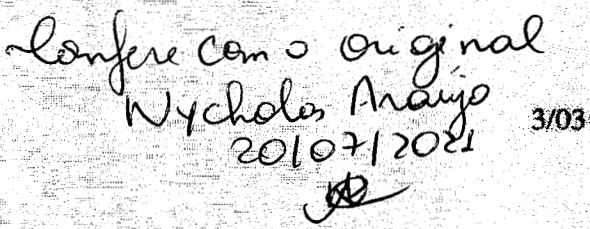 Confere com o original
Nycholas Araujo
20/07/2021
3/03